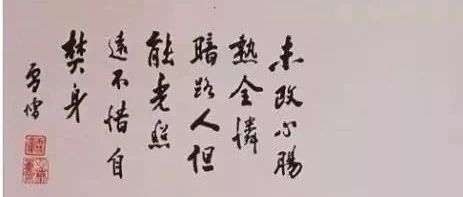 未改心腸
熱全憐
暗路人但
能光照
遠不惜自
燓身
雪僧